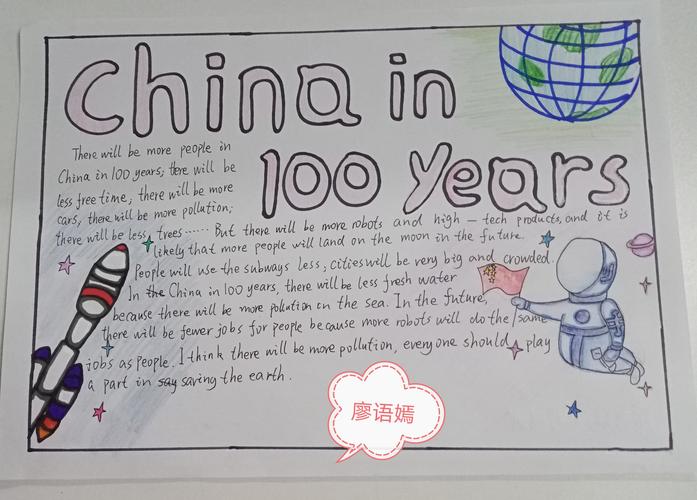 China in
100 Years
There will be more people in
China in 100 years; there will be
less free time; there will be more
cars, there will be more pollution;
there will be less trees...... But there will be more robots and high-tech products, and it is
likely that more people will land on the moon in the future.
People will use the subways less; cities will be very big and crowded.
In the China in 100 years, there will be less fresh water
because there will be more pollution on the sea. In the future,
there will be fewer jobs for people because more robots will do the same
jobs as people. I think there will be more pollution, every one should play
a part in say saving the earth.
廖语嫣